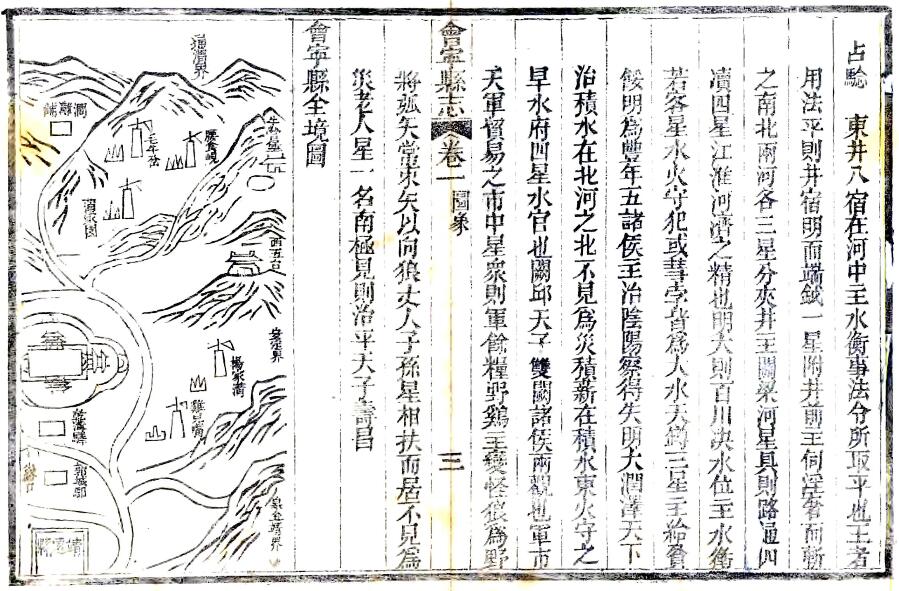 占驗 東井八宿在河中主水衡事法令所取平也王者
用法平則井宿明而端鉞一星附井前主伺淫奢而斬
之南北兩河各三星分夾井主關梁河星具則路通四
瀆四星江淮河濟之精也明大則百川決水位主水衡
若客星水火守犯或彗孛皆為大水天罇三星主給貧
餒明為豐年五諸侯主治陰陽察得失明大潤澤天下
治積水在北河之北不見為災積薪在積水東火守之
旱水府四星水官也闕邱天子雙闕諸侯兩觀也軍市
天軍貿易之市中星眾則軍餘糧野鷄主變怪狼為野
將弧矢當束矢以向狼丈人子孫星相扶而居不見為
災老人星一名南極見則治平天子壽昌
會寧縣志 卷一 圖象 三
會寧縣全境圖
通渭界
西五台
安定界
楊家灣
雞兒嘴
郭城驛
靖遠縣